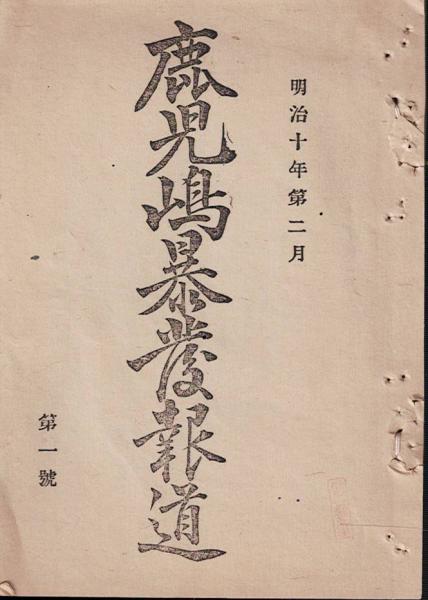 明治十年第二月
鹿児嶋暴發報道
第一號